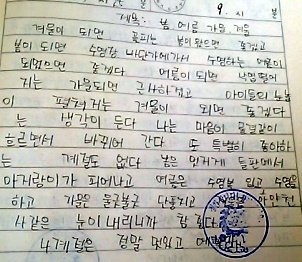 9. 시 분
제목: 봄 여름 가을 겨울
겨울이 되면 꽃피는 봄이 왔으면 좋겠고
봄이 되면 수영장 바닷가에가서 수영하는 여름이
되었으면 좋겠다 여름이 되면 낙엽떨어
지는 가을되면 근사하겠고 아이들의 눈싸움
이 펼쳐지는 겨울이 되면 좋겠다
는 생각이 든다 나는 마음이 물결같이
흐르면서 바뀌어 간다 또 특별히 좋아하
는 계절도 없다 봄은 있지게 들판에서
아지랑이가 피어나고 여름은 수영복 입고 수영을
하고 가을은 울긋불긋 단풍지고
사같은 눈이 내리니까 참 좋다
4계절은 정말 멋있고